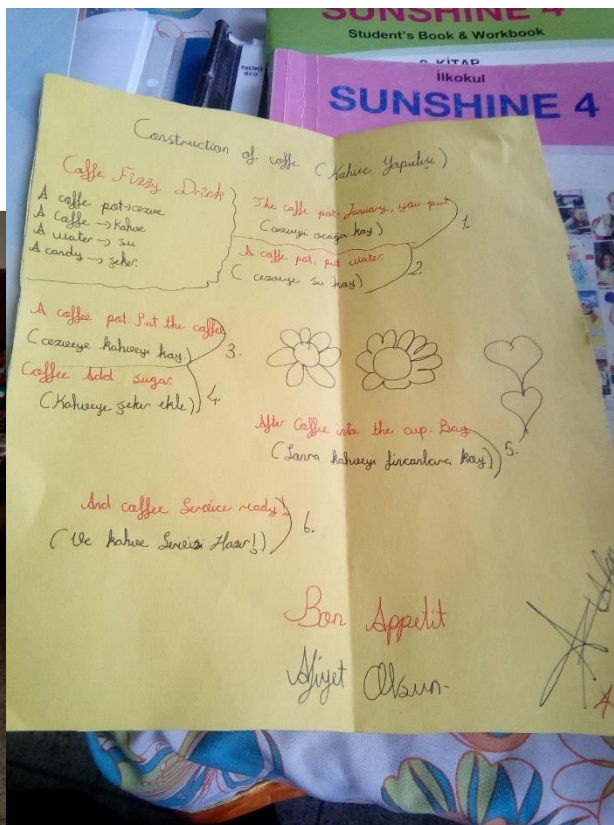 SUNSHINE 4
Student's Book & Workbook
KİTAP
İlkokul
SUNSHINE 4
Construction of coffe (Kahve Yapılışı)
Coffe Fizzy Drink
A coffe pot→cezve
A Coffe → Kahve
A water → su
A candy → şeker
The coffe pot January, you put
(cezveyi ocağa koy)
1.
A coffe pot, put water.
(cezveye su koy)
2.
A coffee pot. Put the coffee
(cezveye kahveyi koy.)
3.
Coffee Add sugar.
(Kahveye şeker ekle)
4.
After Coffee into the cup. Bag
(Sonra kahveyi fincanlara koy)
5.
And coffee Service ready!
(Ve kahve Servisi Hazır!)
6.
Bon Appetit
Afiyet Olsun-